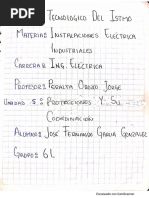 Tecnologico Del Istmo
Materia: Instalaciones Electrica
Industriales
Carrera: Ing. Electrica
Profesor: Peralta Orozo Jorge
Unidad 5: Protecciones Y Su
Coordinación
Alumno: José Fernando Garcia Gonzalez
Grupo: 6L
Escaneado con CamScanner